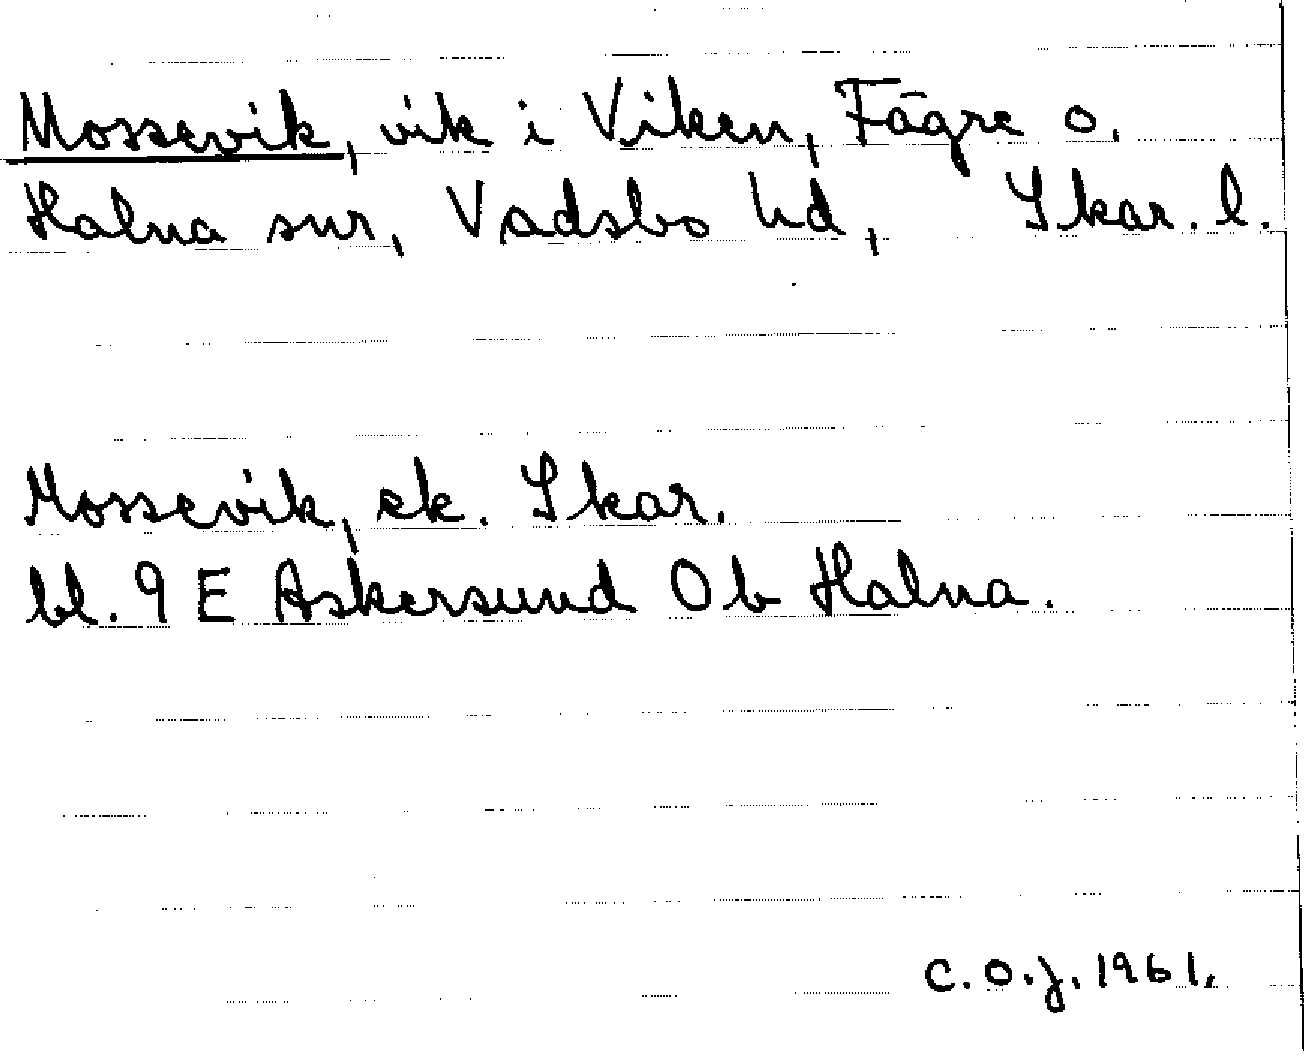 Mossevik, vik i Viken, Fägre o.
Halna snr, Vadsbo hd, Skar. l.
Mossevik, ek. Skar.
bl. 9 E Askersund 0 b Halna.
C.O.J. 1961.